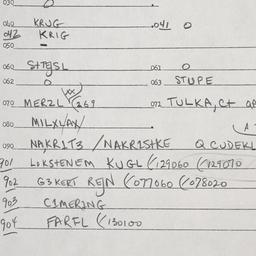 030
040 KRUG .041 O
042 KRIG
050 -
060 061 O
062 O 063 STUPE
070 MERZL 269 072 TULKA, C+
080 MILXI/AX/
090 NAKRIT3 /NAKRISTKE Q CUDEKL
901 LIKSTENEM KUGL (/129060 (/129070
902 G3KERT REJN (/077060 (/078020
903 CIMERJNG
904 FARFL (/130100